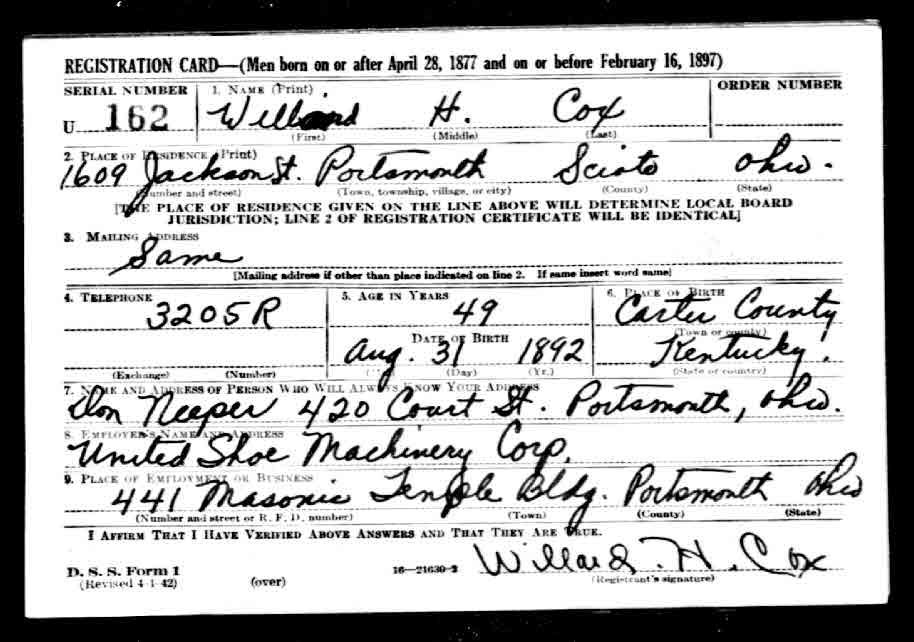 REGISTRATION CARD—(Men born on or after April 28, 1877 and on or before February 16, 1897)
SERIAL NUMBER 1. NAME (Print) ORDER NUMBER
U 162 Willard H. Cox
(First) (Middle) (Last)
2. PLACE OF RESIDENCE (Print)
1609 Jackson St. Portsmouth Scioto Ohio.
(Number and street) (Town, township, village, or city) (County) (State)
[THE PLACE OF RESIDENCE GIVEN ON THE LINE ABOVE WILL DETERMINE LOCAL BOARD
JURISDICTION; LINE 2 OF REGISTRATION CERTIFICATE WILL BE IDENTICAL]
3. MAILING ADDRESS
Same
[Mailing address if other than place indicated on line 2. If same insert word same]
4. TELEPHONE 5. AGE IN YEARS 6. PLACE OF BIRTH
3205R 49 Carter County
DATE OF BIRTH (Town or county)
Aug. 31 1892 Kentucky
(Exchange) (Number) (Day) (Yr.) (State or country)
7. NAME AND ADDRESS OF PERSON WHO WILL ALWAYS KNOW YOUR ADDRESS
Don Neeper 420 Court St. Portsmouth, Ohio.
8. EMPLOYER'S NAME AND ADDRESS
United Shoe Machinery Corp.
9. PLACE OF EMPLOYMENT OR BUSINESS
441 Masonic Temple Bldg. Portsmouth Ohio
(Number and street or R. F. D. number) (Town) (County) (State)
I AFFIRM THAT I HAVE VERIFIED ABOVE ANSWERS AND THAT THEY ARE TRUE.
Willard. H. Cox
D. S. S. Form 1
(Revised 4-1-42) (over) 16—21630-2 (Registrant's signature)